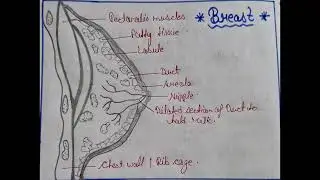 * Breast *
Pectoralis muscles
Fatty tissue
Lobule
Duct
Areola
Nipple
Dilated section of Duct to
hold milk.
Chest wall / Rib cage.